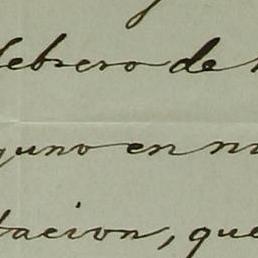 febrero de
guno en
tacion, que